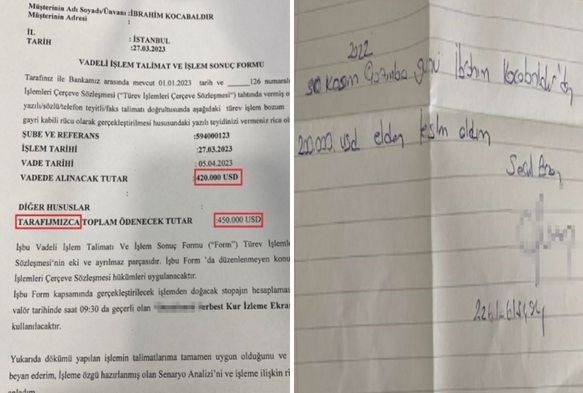 Müşterinin Adı Soyadı/Ünvanı :İBRAHİM KOCABALDIR
Müşterinin Adresi :
İL : İSTANBUL
TARİH :27.03.2023
VADELİ İŞLEM TALİMATI VE İŞLEM SONUÇ FORMU
Tarafınız ile Bankamız arasında mevcut 01.01.2023 tarih ve ______126 numaralı
İşlemleri Çerçeve Sözleşmesi ("Türev İşlemleri Çerçeve Sözleşmesi") tahtında vermiş o
yazılı/sözlü/telefon teyitli/faks talimatı doğrultusunda aşağıdaki türev işlem bozum
gayri kabili rücu olarak gerçekleştirilmesi hususundaki yazılı teyidinizi vermeniz rica ol
ŞUBE VE REFERANS :594000123
İŞLEM TARİHİ :27.03.2023
VADE TARİHİ :05.04.2023
VADEDE ALINACAK TUTAR :420.000 USD
DİĞER HUSUSLAR
TARAFIJMIZCA TOPLAM ÖDENECEK TUTAR :450.000 USD
İşbu Vadeli İşlem Talimatı Ve İşlem Sonuç Formu ("Form") Türev İşleml
Sözleşmesi'nin eki ve ayrılmaz parçasıdır. İşbu Form 'da düzenlenmeyen konu
İşlemleri Çerçeve Sözleşmesi hükümleri uygulanacaktır.
İşbu Form kapsamında gerçekleştirilecek işlemden doğacak stopajın hesaplaması
valör tarihinde saat 09:30 da geçerli olan erbest Kur İzleme Ekra
kullanılacaktır.
Yukarıda dökümü yapılan işlemin talimatlarıma tamamen uygun olduğunu ve
beyan ederim, İşleme özgü hazırlanmış olan Senaryo Analizi'ni ve işleme ilişkin ri
anladım
2022
30 Kasım Çarşamba günü İbrahim Kocabaldır'dan
200.000 usd elden teslim aldım